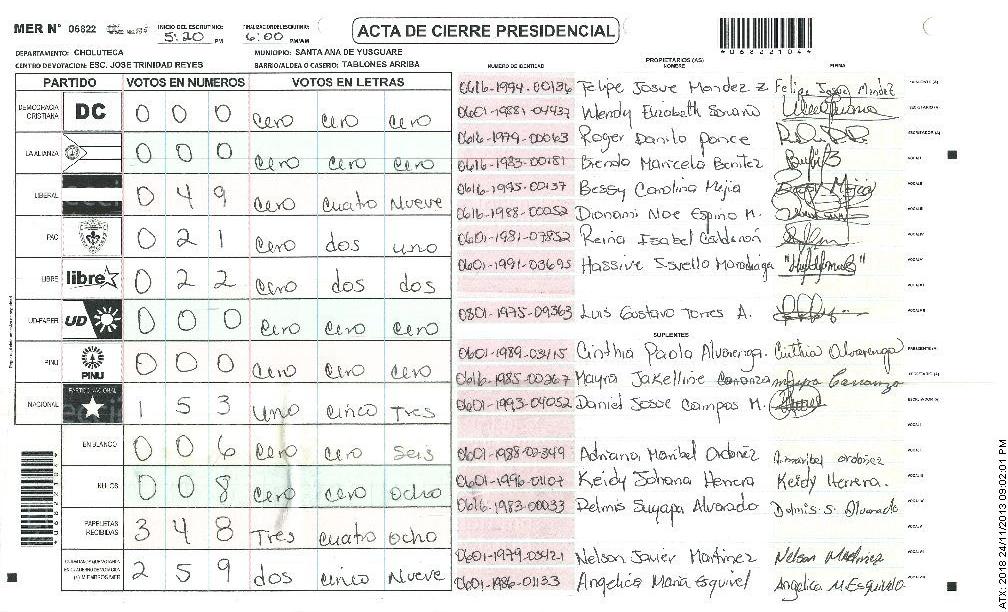 MER N° 06822 INICIO DEL ESCRUTINIO: 5:20 PM FINALIZACION DEL ESCRUTINIO: 6:00 PM/AM ACTA DE CIERRE PRESIDENCIAL
DEPARTAMENTO: CHOLUTECA MUNICIPIO: SANTA ANA DE YUSGUARE
CENTRO DE VOTACION: ESC. JOSE TRINIDAD REYES BARRIO/ALDEA O CASERIO: TABLONES ARRIBA
PARTIDO VOTOS EN NUMEROS VOTOS EN LETRAS
DEMOCRACIA CRISTIANA DC 0 0 0 Cero Cero Cero
LA ALIANZA 0 0 0 Cero Cero Cero
LIBERAL 0 4 9 Cero Cuatro Nueve
PAC 0 2 1 Cero dos uno
LIBRE libre 0 2 2 Cero dos dos
UD-FAPER UD 0 0 0 Cero Cero Cero
PINU PINU 0 0 0 Cero Cero Cero
NACIONAL PARTIDO NACIONAL 1 5 3 Uno Cinco Tres
EN BLANCO 0 0 6 Cero Cero Seis
NULOS 0 0 8 Cero Cero Ocho
PAPELETAS RECIBIDAS 3 4 8 Tres Cuatro Ocho
2 5 9 dos Cinco Nueve
NUMERO DE IDENTIDAD PROPIETARIOS (AS) NOMBRE FIRMA
0616-1994-00136 Felipe Josue Mendez Z Felipe Josue Mendez
0601-1988-04437 Wendy Elizabeth Soriano
0616-1979-00063 Roger Danilo Ponce
0616-1983-00181 Brenda Maricela Benitez
0616-1995-00137 Bessy Carolina Mejia Bessy Mejia
0616-1988-00052 Dionami Noe Espino M.
0601-1981-07852 Reina Isabel Calderón
0601-1991-03695 Hassive
0801-1975-09363 Luis Gustavo Torres A.
SUPLENTES
0601-1989-03415 Cinthia Paola Alvarenga. Cinthia Alvarenga
0616-1985-00267 Mayra Jakelline Carranza Mayra Carranza
0601-1993-04052 Daniel Josue Campos M.
0601-1988-02349 Adriana Maribel Ordoñez A.maribel ordoñez
0601-1996-01107 Keidy Johana Herrera Keidy Herrera.
0616-1983-00033 Delmis Suyapa Alvarado Delmis S. Alvarado
0601-1979-03421 Nelson Javier Martinez Nelson Martinez
0601-1986-01133 Angelica Maria Esquivel Angelica M. Esquivel
06822104
ATX: 2018 24/11/2013 09:02:01 PM